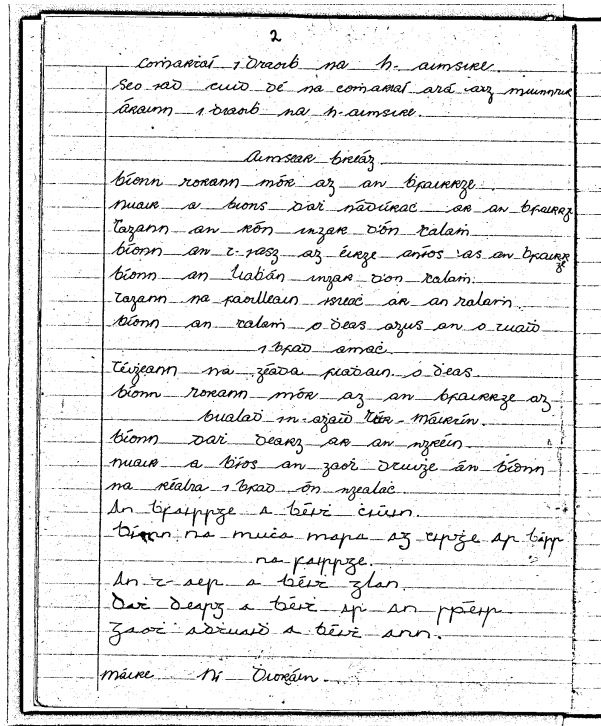 2
Comartaí i dtaoib na h-aimsire.
Seo iad cuid dé na comartaí atá aig muinntir
Árainn i dtaoib na h-aimsire.
Aimsear breág.
bíonn torann mór ag an bfairrge.
nuair a bíons dat nádúrac ar an bfairrg
Tagann an rón ingar dón talaṁ.
bíonn an t-iasg ag éirge aníos as an bfairrge
bíonn an liabán ingar don talaṁ.
tagann na faoilleain isteac ar an talaṁ.
bíonn an talaṁ ó ḋeas agus an ó tuaid
i bfad amac.
Téigeann na géada fiadain ó ḋeas.
bíonn torann mór ag an bfairrge ag
bualad in-agaid Tór-Máirtín.
bíonn dat dearg ar an ngréin.
nuair a bíos an gaot druige án bíonn
na réalta i bfad ón ngealac.
An bfairrge a béit ciúin.
bíonn na muca mara ag éirge ar barr
na fairrge.
An t-aer a béit glan.
Dat dearg a béit ar an spéir.
Gaot aduaid a béit ann.
Máire Ní Dioráin.